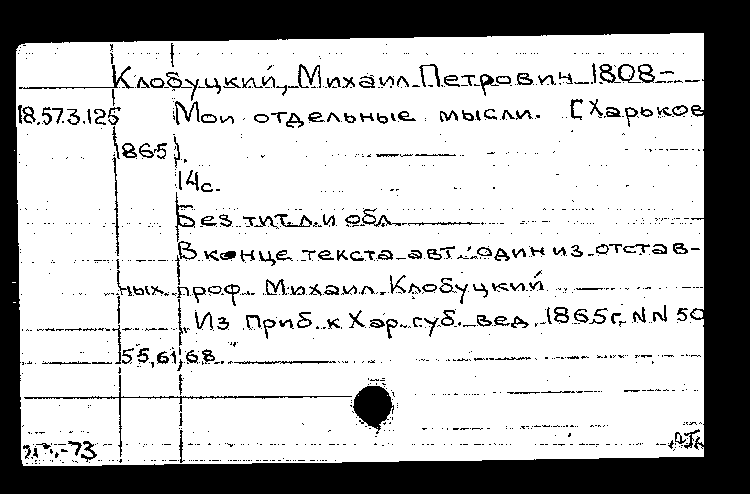 Клобуцкий, Михаил Петрович 1808-
18.573.125 Мои отдельные мысли. [Харьков
1865].
14с.
Без тит.л. и обл.
В конце текста авт.: один из отстав-
ных проф. Михаил Клобуцкий
"Из Приб. к Хар. губ. вед. 1865г. NN 50
55,61,68"
-73